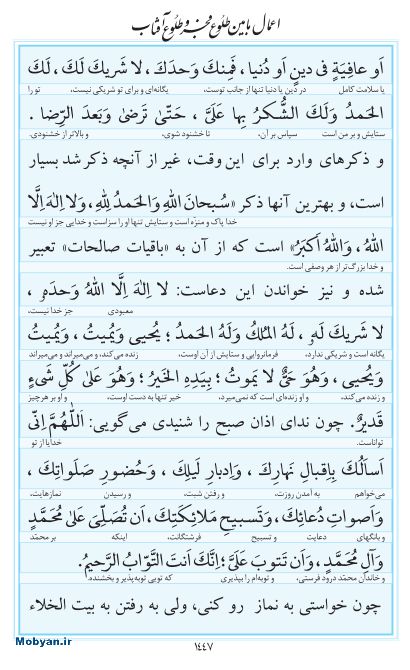 اعمال مابین طلوع فجر و طلوع آفتاب
اَو عافِيَةٍ فى دينٍ اَو دُنيا، فَمِنكَ وَحدَكَ، لا شَريكَ لَكَ، لَكَ
يا سلامت کامل در دین یا دنیا تنها از جانب توست، یگانه‌ای و برای تو شریکی نیست، تو را
الحَمدُ وَلَكَ الشُّكرُ بِها عَلَىَّ، حَتّىٰ تَرضىٰ وَبَعدَ الرِّضا.
ستایش و بر من است سپاس بر آن، تا خشنود شوی، و بالاتر از خشنودی.
و ذکرهای وارد برای این وقت، غیر از آنچه ذکر شد بسیار
است، و بهترین آنها ذکر «سُبحانَ اللهِ وَالحَمدُ لِلّٰهِ، وَلا اِلٰهَ اِلَّا
خدا پاک و منزّه است و ستایش تنها او را سزاست و خدایی جز او نیست
اللهُ، وَاللهُ اَكبَرُ» است که از آن به «باقیات صالحات» تعبیر
و خدا بزرگ‌تر از هر وصفی است.
شده و نیز خواندن این دعاست: لا اِلٰهَ اِلَّا اللهُ وَحدَهُ،
معبودی جز خدا نیست،
لا شَريكَ لَهُ، لَهُ المُلكُ وَلَهُ الحَمدُ؛ يُحيى وَيُميتُ، وَيُميتُ
یگانه است و شریکی ندارد، فرمانروایی و ستایش از آن اوست، زنده می‌کند، و می‌میراند و می‌میراند
وَيُحيى، وَهُوَ حَىٌّ لا يَموتُ؛ بِيَدِهِ الخَيرُ؛ وَهُوَ عَلىٰ كُلِّ شَىءٍ
و زنده می‌کند، و او زنده‌ای است که نمی‌میرد، خیر تنها به دست اوست، و او بر هر چیز
قَديرٌ. چون ندای اذان صبح را شنیدی می‌گویی: اَللّٰهُمَّ اِنّى
تواناست. خدایا از تو
اَسأَلُكَ بِاِقبالِ نَهارِكَ، وَاِدبارِ لَيلِكَ، وَحُضورِ صَلَواتِكَ،
می‌خواهم به آمدن روزت، و رفتن شبت، و رسیدن نمازهایت،
وَاَصواتِ دُعائِكَ، وَتَسبيحِ مَلائِكَتِكَ، اَن تُصَلِّىَ عَلىٰ مُحَمَّدٍ
و بانگهای دعایت و تسبیح فرشتگانت، اینکه بر محمّد
وَآلِ مُحَمَّدٍ، وَاَن تَتوبَ عَلَىَّ؛ اِنَّكَ اَنتَ التَّوّابُ الرَّحيمُ.
و خاندان محمّد درود فرستی، و توبه‌ام را بپذیری که تویی توبه‌پذیر و بخشنده.
چون خواستی به نماز رو کنی، ولی به رفتن به بیت الخلاء
Mobyan.ir
۱۴۴۷